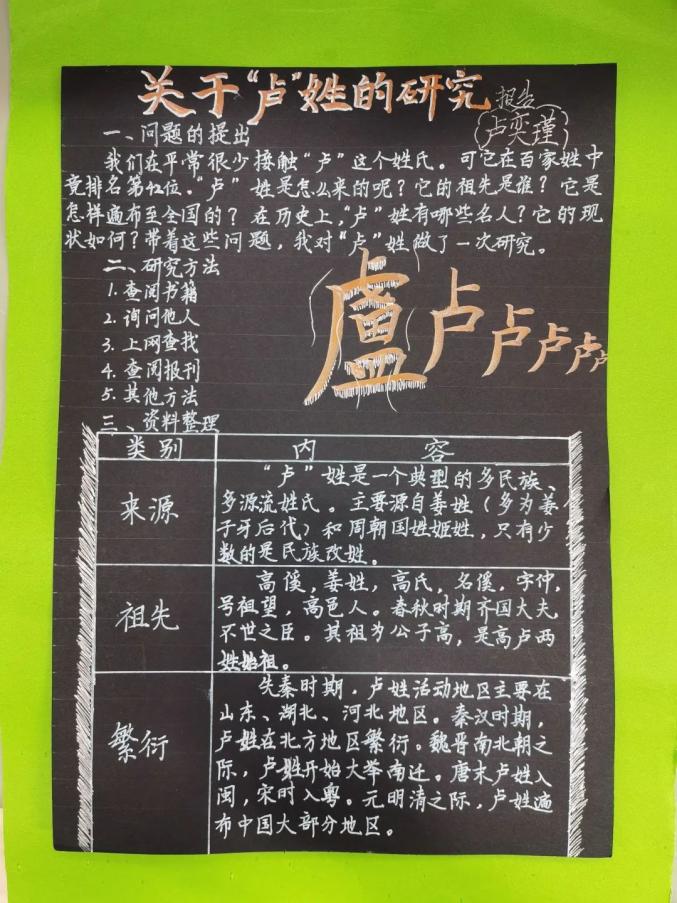 关于“卢”姓的研究报告
卢奕瑾
一、问题的提出
我们在平常很少接触“卢”这个姓氏。可它在百家姓中
竟排名第42位。“卢”姓是怎么来的呢？它的祖先是谁？它是
怎样遍布至全国的？在历史上，“卢”姓有哪些名人？它的现
状如何？带着这些问题，我对“卢”姓做了一次研究。
二、研究方法
1.查阅书籍
2.询问他人
3.上网查找
4.查阅报刊
5.其他方法
盧卢卢卢卢卢
三、资料整理
类别 内容
来源
“卢”姓是一个典型的多民族、
多源流姓氏。主要源自姜姓（多为姜
子牙后代）和周朝国姓姬姓，只有少
数的是民族改姓。
祖先
高傒，姜姓，高氏，名傒，字仲，
号祖望，高邑人。春秋时期齐国大夫
不世之臣。其祖为公子高，是高卢两
姓始祖。
繁衍
先秦时期，卢姓活动地区主要在
山东、湖北、河北地区。秦汉时期，
卢姓在北方地区繁衍。魏晋南北朝之
际，卢姓开始大举南迁。唐末卢姓入
闽，宋时入粤。元明清之际，卢姓遍
布中国大部分地区。